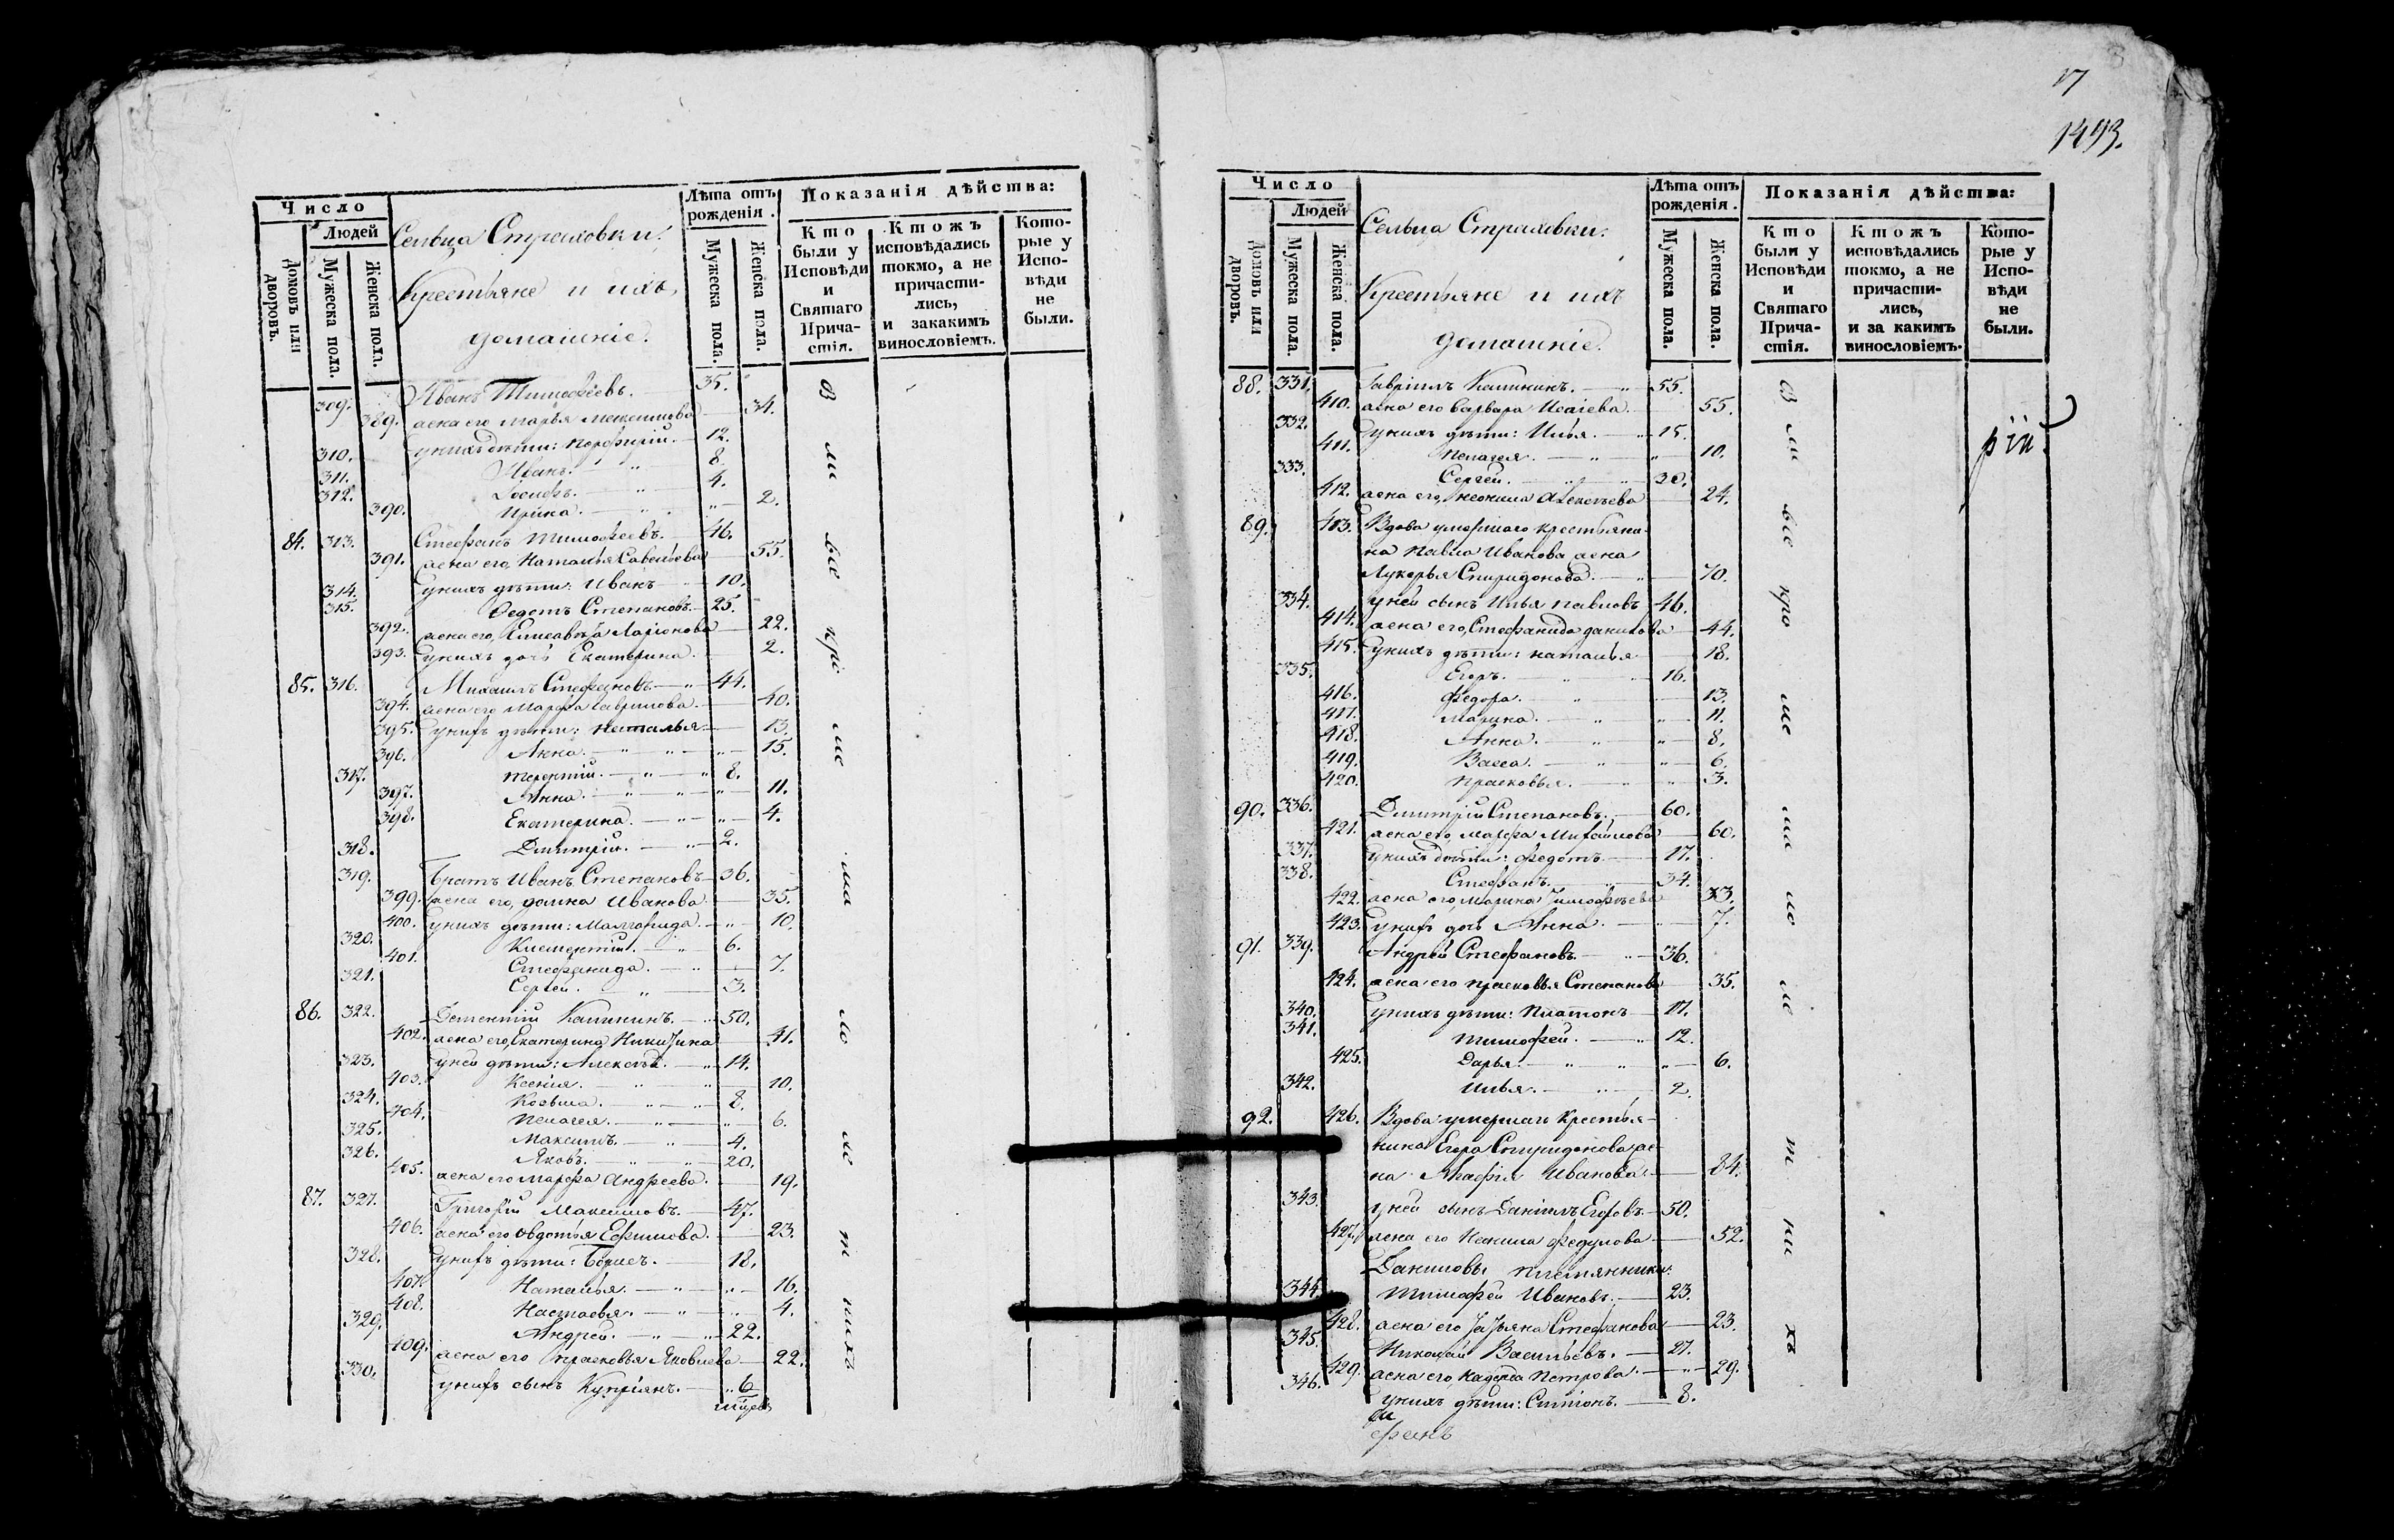 17
1493.
Число
Людей
Домовъ или дворовъ.
Мужеска пола.
Женска пола.
Сельца Страховки.
Крестьяне и ихъ
домашніе.
Лѣта отъ рожденія.
Мужеска пола.
Женска пола.
Показанія дѣйства:
Кто были у Исповѣди и Святаго Причастія.
Ктожъ исповѣдались токмо, а не причастились, и закакимъ винословіемъ.
Которые у Исповѣди не были.
309. Иванъ Тимофеевъ. 35.
389. жена его Марья Максимова 34.
310. у нихъ дѣти: Порфирій. 12.
311. Иванъ. 8.
312. Іосифъ. 4.
390. Ирина. 2.
84. 313. Стефанъ Тимофеевъ. 46.
391. жена его, Наталья Савельева 55.
314. у нихъ дѣти: Иванъ 10.
315. Федотъ Степановъ. 25.
392. жена его, Елисавета Ларіонова 22.
393. у нихъ дочь Екатерина. 2.
85. 316. Михаилъ Стефановъ 44.
394. жена его Марфа Гаврилова. 40.
395. у нихъ дѣти: Наталья 13.
396. Анна. 15.
317. Терентій. 8.
397. Анна. 11.
398. Екатерина. 4.
318. Дмитрій. 2.
319. Братъ Иванъ Степановъ 36.
399. жена его, Домна Иванова 35.
400. у нихъ дѣти: Маргарида. 10.
320. Климентій. 6.
401. Стефанида. 7.
321. Сергей. 3.
86. 322. Дементій Калининъ. 50.
402. жена его, Екатерина Никитина 41.
323. у ней дѣти: Алексѣй. 14.
403. Ксенія. 10.
324. Козьма. 8.
404. Пелагея. 6.
325. Максимъ. 4.
326. Яковъ. 20.
405. жена его Марфа Андреева. 19.
87. 327. Григорій Максимовъ. 47.
406. жена его Овдотья Ефимова. 23.
328. у нихъ дѣти: Борисъ. 18.
407. Наталья. 16.
408. Настасья. 4.
329. Андрей. 22.
409. жена его Прасковья Яковлева 22.
330. у нихъ сынъ Купріянъ. 6
Число
Людей
Домовъ или дворовъ.
Мужеска пола.
Женска пола.
Сельца Страховки.
Крестьяне и ихъ
домашніе.
Лѣта отъ рожденія.
Мужеска пола.
Женска пола.
Показанія дѣйства:
Кто были у Исповѣди и Святаго Причастія.
Ктожъ исповѣдались токмо, а не причастились, и за какимъ винословіемъ.
Которые у Исповѣди не были.
88. 331. Гавріилъ Калининъ. 55.
410. жена его Варвара Исаіева. 55.
332. у нихъ дѣти: Илья. 15.
411. Пелагея. 10.
333. Сергей. 30.
412. жена его, Неонила Алексѣева 24.
89. 413. Вдова умершаго крестьяни-
на Павла Иванова жена
Лукерья Спиридонова. 70.
334. у ней сынъ Илья Павловъ 46.
414. жена его, Стефанида Данилова 44.
415. у нихъ дѣти: Наталья 18.
335. Егоръ. 16.
416. Федора. 13.
417. Марина. 11.
418. Анна. 8.
419. Васса. 6.
420. Прасковья. 3.
90. 336. Дмитрій Степановъ. 60.
421. жена его, Марфа Михайлова 60.
337. у нихъ дѣти: Федотъ. 17.
338. Стефанъ. 34.
422. жена его, Марина Тимофѣева 33.
423. у нихъ дочь Анна. 7.
91. 339. Андрей Стефановъ. 36.
424. жена его Прасковья Степанова 35.
340. у нихъ дѣти: Платонъ 17.
341. Тимофей. 12.
425. Дарья. 6.
342. Илья. 2.
92. 426. Вдова умершаго крестья-
нина Егора Спиридонова же-
на Агафія Иванова. 84.
343. у ней сынъ Даніилъ Егоровъ 50.
427. жена его Неонила Федулова 52.
Даниловы племянники:
344. Тимофей Ивановъ. 23.
428. жена его Татьяна Стефанова 23.
345. Николай Васильевъ. 27.
429. жена его, Надежда Петрова. 29.
346. у нихъ дѣти: Симіонъ. 8.